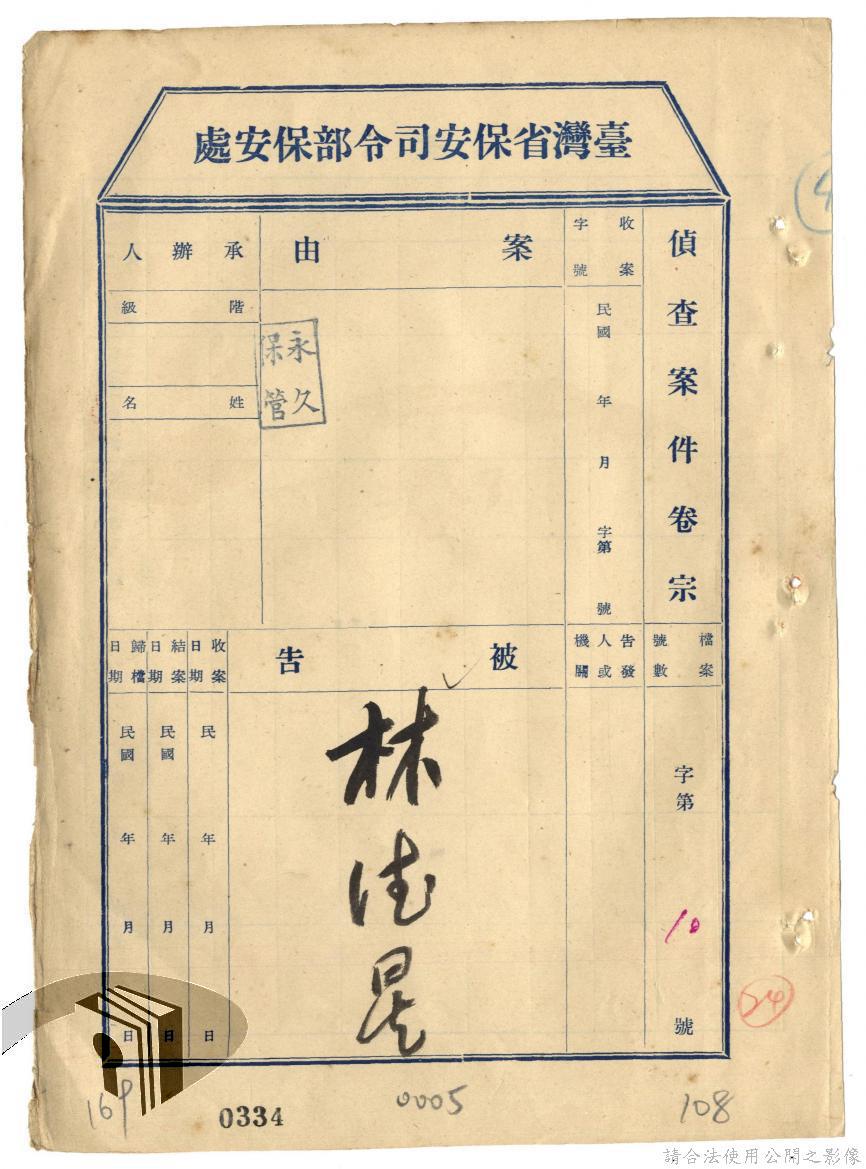 臺灣省保安司令部保安處
偵查案件卷宗
收案
字號
民國 年 月 字第 號
案由
承辦人
階級
姓名
永久
保管
檔案
號數
字第 10 號
告發
人或
機關
被告
林德星
收案
日期
民 年 月 日
結案
日期
民國 年 月 日
歸檔
日期
民國 年 月 日
24
169
0334
0005
108
請合法使用公開之影像